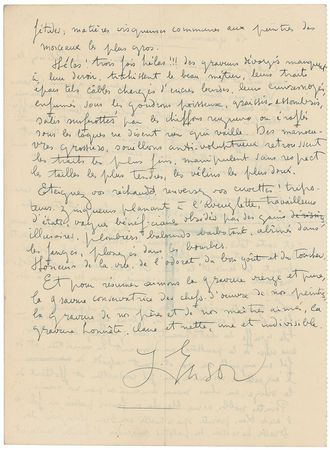 fétides, matières visqueuses communes aux peintres des
morceaux les plus gros.
Hélas! trois fois hélas!!! des graveurs dévoyés manquent
à leur devoir, trahissent le beau métier, leurs traits
épais tels câbles chargés d'encres lourdes, leur
enfumés sous les goudrons poisseux, graissés, assombris,
salis surfrottés par les chiffons rugueux ou
sous les laques ne disent rien qui vaille. Des manœu-
vres grossiers, souillons anti-voluptueux retroussent
les traits les plus fins, manipulent sans respect
les tailles les plus tendres, les vélins les plus doux.
Éteignez vos réchauds renversez vos cuvettes!
à l'aveuglette, travailleurs
d'états, vagues bénéficiaires obsédés par des gains
illusoires, plombiers, balourds barbotant, abîmés dans
les fanges, plongés dans les bourbes.
de la vue, de l'odorat, du bon goût et du toucher.
Et pour résumer aimons la gravure vierge et pure,
la gravure conservatrice des chefs-d'œuvre de nos peintres
la gravure de nos pères et de nos maîtres aimés, la
gravure honnête, claire et nette, une et indivisible.
J Ensor